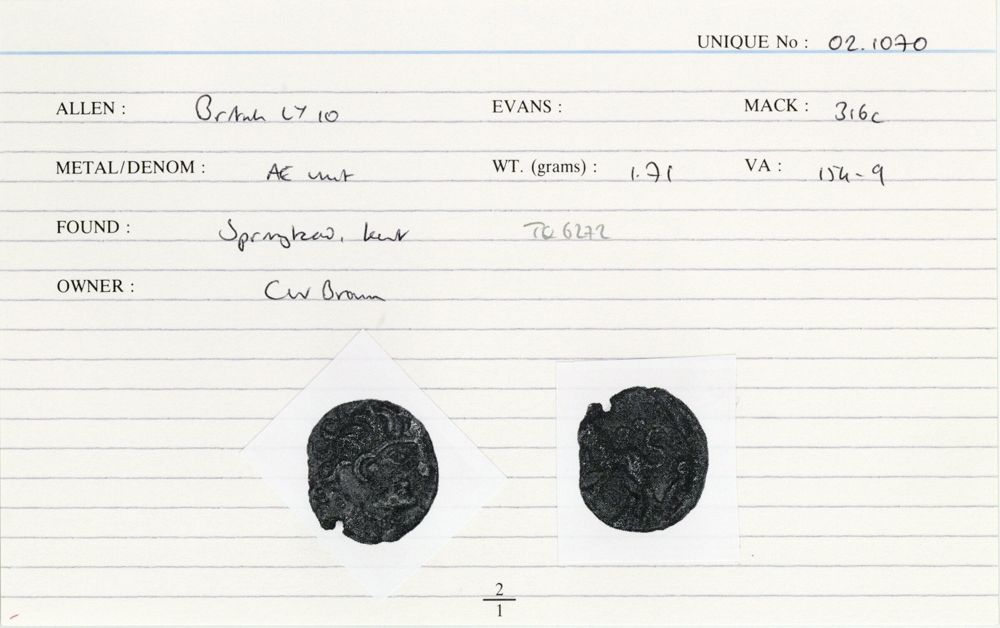 UNIQUE No : 02.1070
ALLEN : British LY 10 EVANS : MACK : 316c
METAL/DENOM : AE unit WT. (grams) : 1.71 VA : 154-9
FOUND : Springhead, Kent TQ 6272
OWNER : CW Brown
2
1